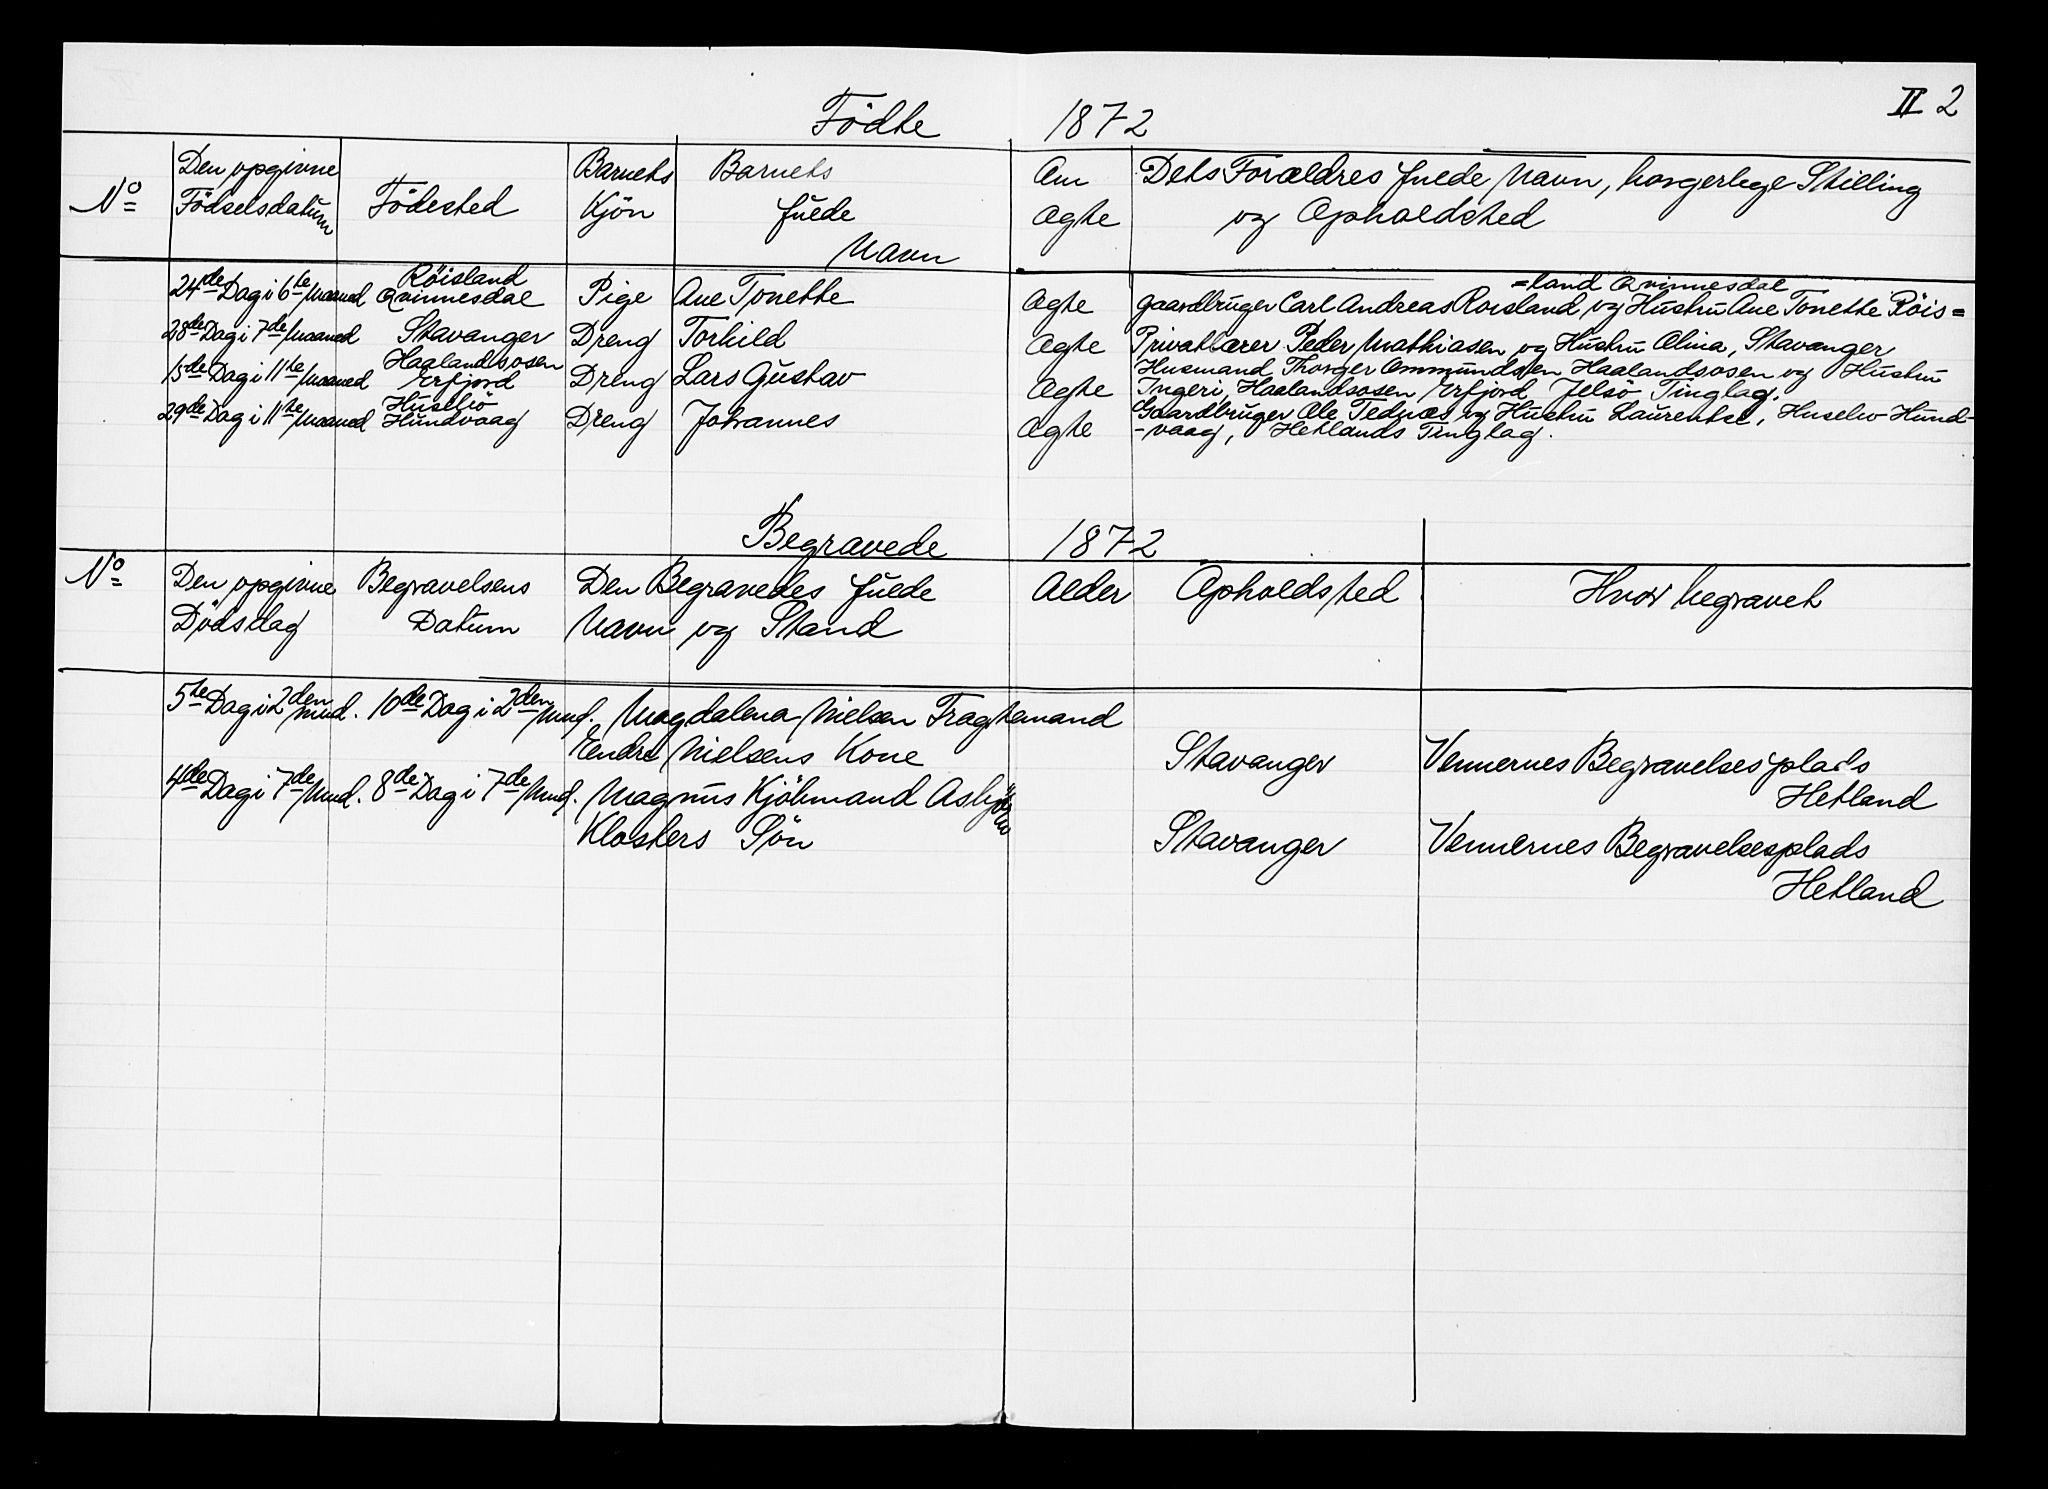 II 2
Födte 1872
No Den opgivne Födselsdatum Födested Barnets Kjön Barnets fulde Navn Om Ægte Dets Forældres fulde Navn, borgerlige Stilling og Opholdsted
24de Dag i 6te Maaned Röisland Qvinnesdal Pige Ane Tonette Ægte Gaardbruger Carl Andreas Roisland og Hustru Ane Tonette Röis=
=land Qvinnesdal
28de Dag i 7de Maaned Stavanger Dreng Torkild Ægte Privatlærer Peder Mathiasen og Hustru Alina, Stavanger
15de Dag i 11te Maaned Haalandsosen Erfjord Dreng Lars Gustav Ægte Husmand Thorger Ommundsen Haalandsosen og Hustru
Ingeri, Haalandsosen Erfjord Jelsö Tinglag.
29de Dag i 11te Maaned Husebö Hundvaag Dreng Johannes Ægte Gaardbruger Ole Tednæs og Hustru Laurentse, Husebo Hund-
-vaag, Hetlands Tinglag.
Begravede 1872
No Den opgivne Dödsdag Begravelsens Datum Den Begravedes fulde Navn og Stand Alder Opholdsted Hvor begravet
5te Dag i 2den Mnd. 10de Dag i 2den Mnd. Magdalena Nielsen Fragtemand
Endre Nielsens Kone Stavanger Vennernes Begravelsesplads
Hetland
4de Dag i 7de Mnd. 8de Dag i 7de Mnd. Magnus Kjöbmand Asbjörn
Klosters Sön Stavanger Vennernes Begravelsesplads
Hetland